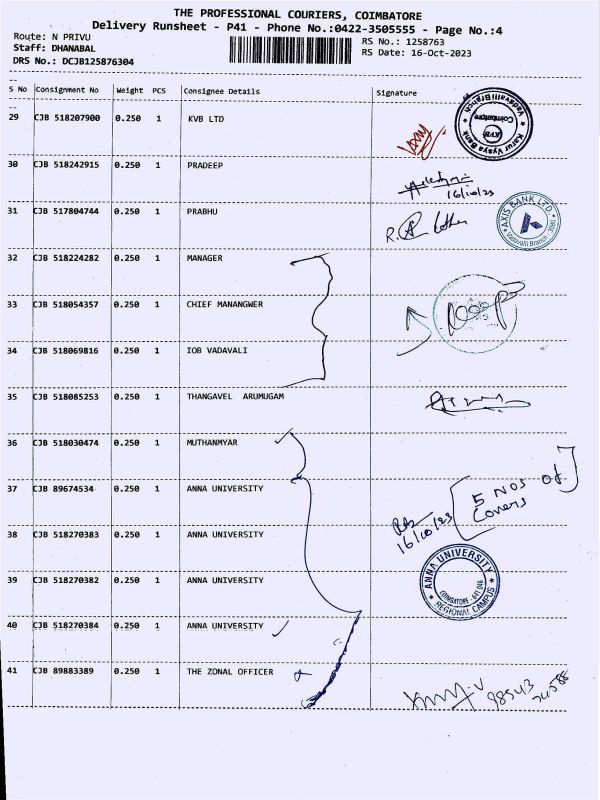 THE PROFESSIONAL COURIERS, COIMBATORE
Delivery Runsheet - P41 - Phone No.:0422-3505555 - Page No.:4
Route: N PRIVU
RS No.: 1258763
Staff: DHANABAL
RS Date: 16-Oct-2023
DRS No.: DCJB125876304
S No Consignment No Weight PCS Consignee Details Signature
29 CJB 518207900 0.250 1 KVB LTD
Karur Vysya Bank
KVB
Coimbatore
Vadavalli Branch
30 CJB 518242915 0.250 1 PRADEEP
16/10/23
31 CJB 517804744 0.250 1 PRABHU
AXIS BANK LTD
Vadavalli Branch
32 CJB 518224282 0.250 1 MANAGER
33 CJB 518054357 0.250 1 CHIEF MANANGWER
34 CJB 518069816 0.250 1 IOB VADAVALI
35 CJB 518085253 0.250 1 THANGAVEL ARUMUGAM
36 CJB 518030474 0.250 1 MUTHANMYAR
37 CJB 89674534 0.250 1 ANNA UNIVERSITY
5 Nos of
Covers
16/10/23
38 CJB 518270383 0.250 1 ANNA UNIVERSITY
39 CJB 518270382 0.250 1 ANNA UNIVERSITY
ANNA UNIVERSITY
COIMBATORE - 641 046
REGIONAL CAMPUS
40 CJB 518270384 0.250 1 ANNA UNIVERSITY
41 CJB 89883389 0.250 1 THE ZONAL OFFICER
98543
74588